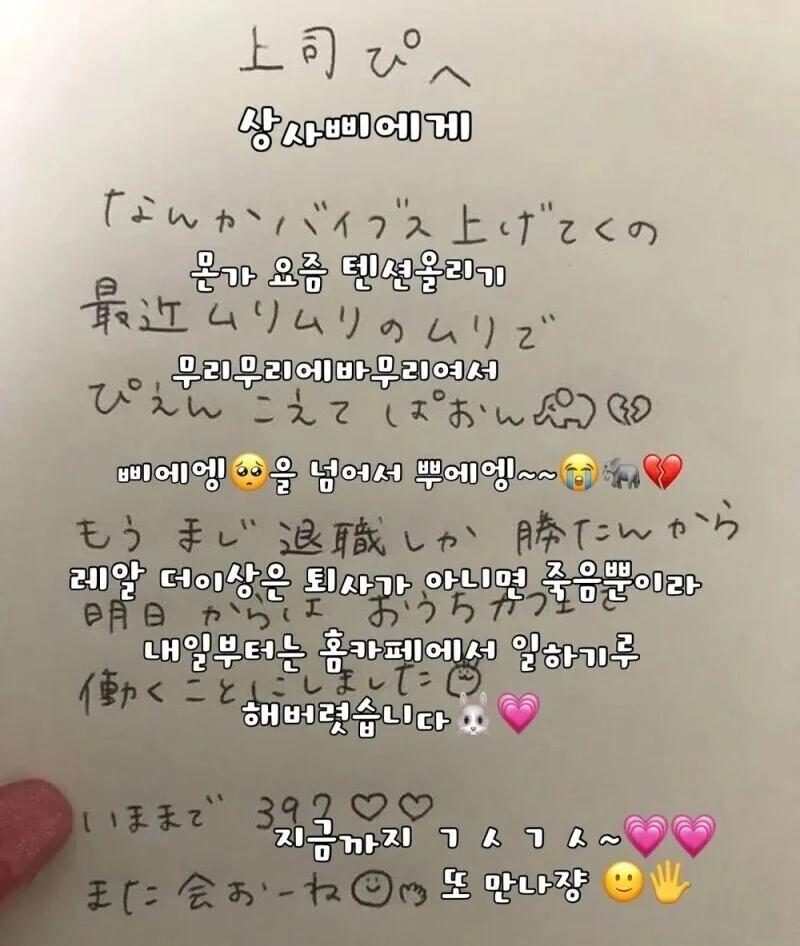 上司ぴへ
상사삐에게
なんかバイブス上げてくの
몬가 요즘 텐션올리기
最近ムリムリのムリで
무리무리에바무리여서
ぴえんこえてぱおん🐘💔
삐에엥🥺을 넘어서 뿌에엥~~😭🐘💔
もうまじ退職しか勝たんから
레알 더이상은 퇴사가 아니면 죽음뿐이라
明日からは おうちカフェで
내일부터는 홈카페에서 일하기루
働くことにしました
해버렸습니다🐰💗
いままで 39?♡♡
지금까지 ㄱㅅㄱㅅ~💗💗
また会おーね☺
또 만나쟝 🙂🖐